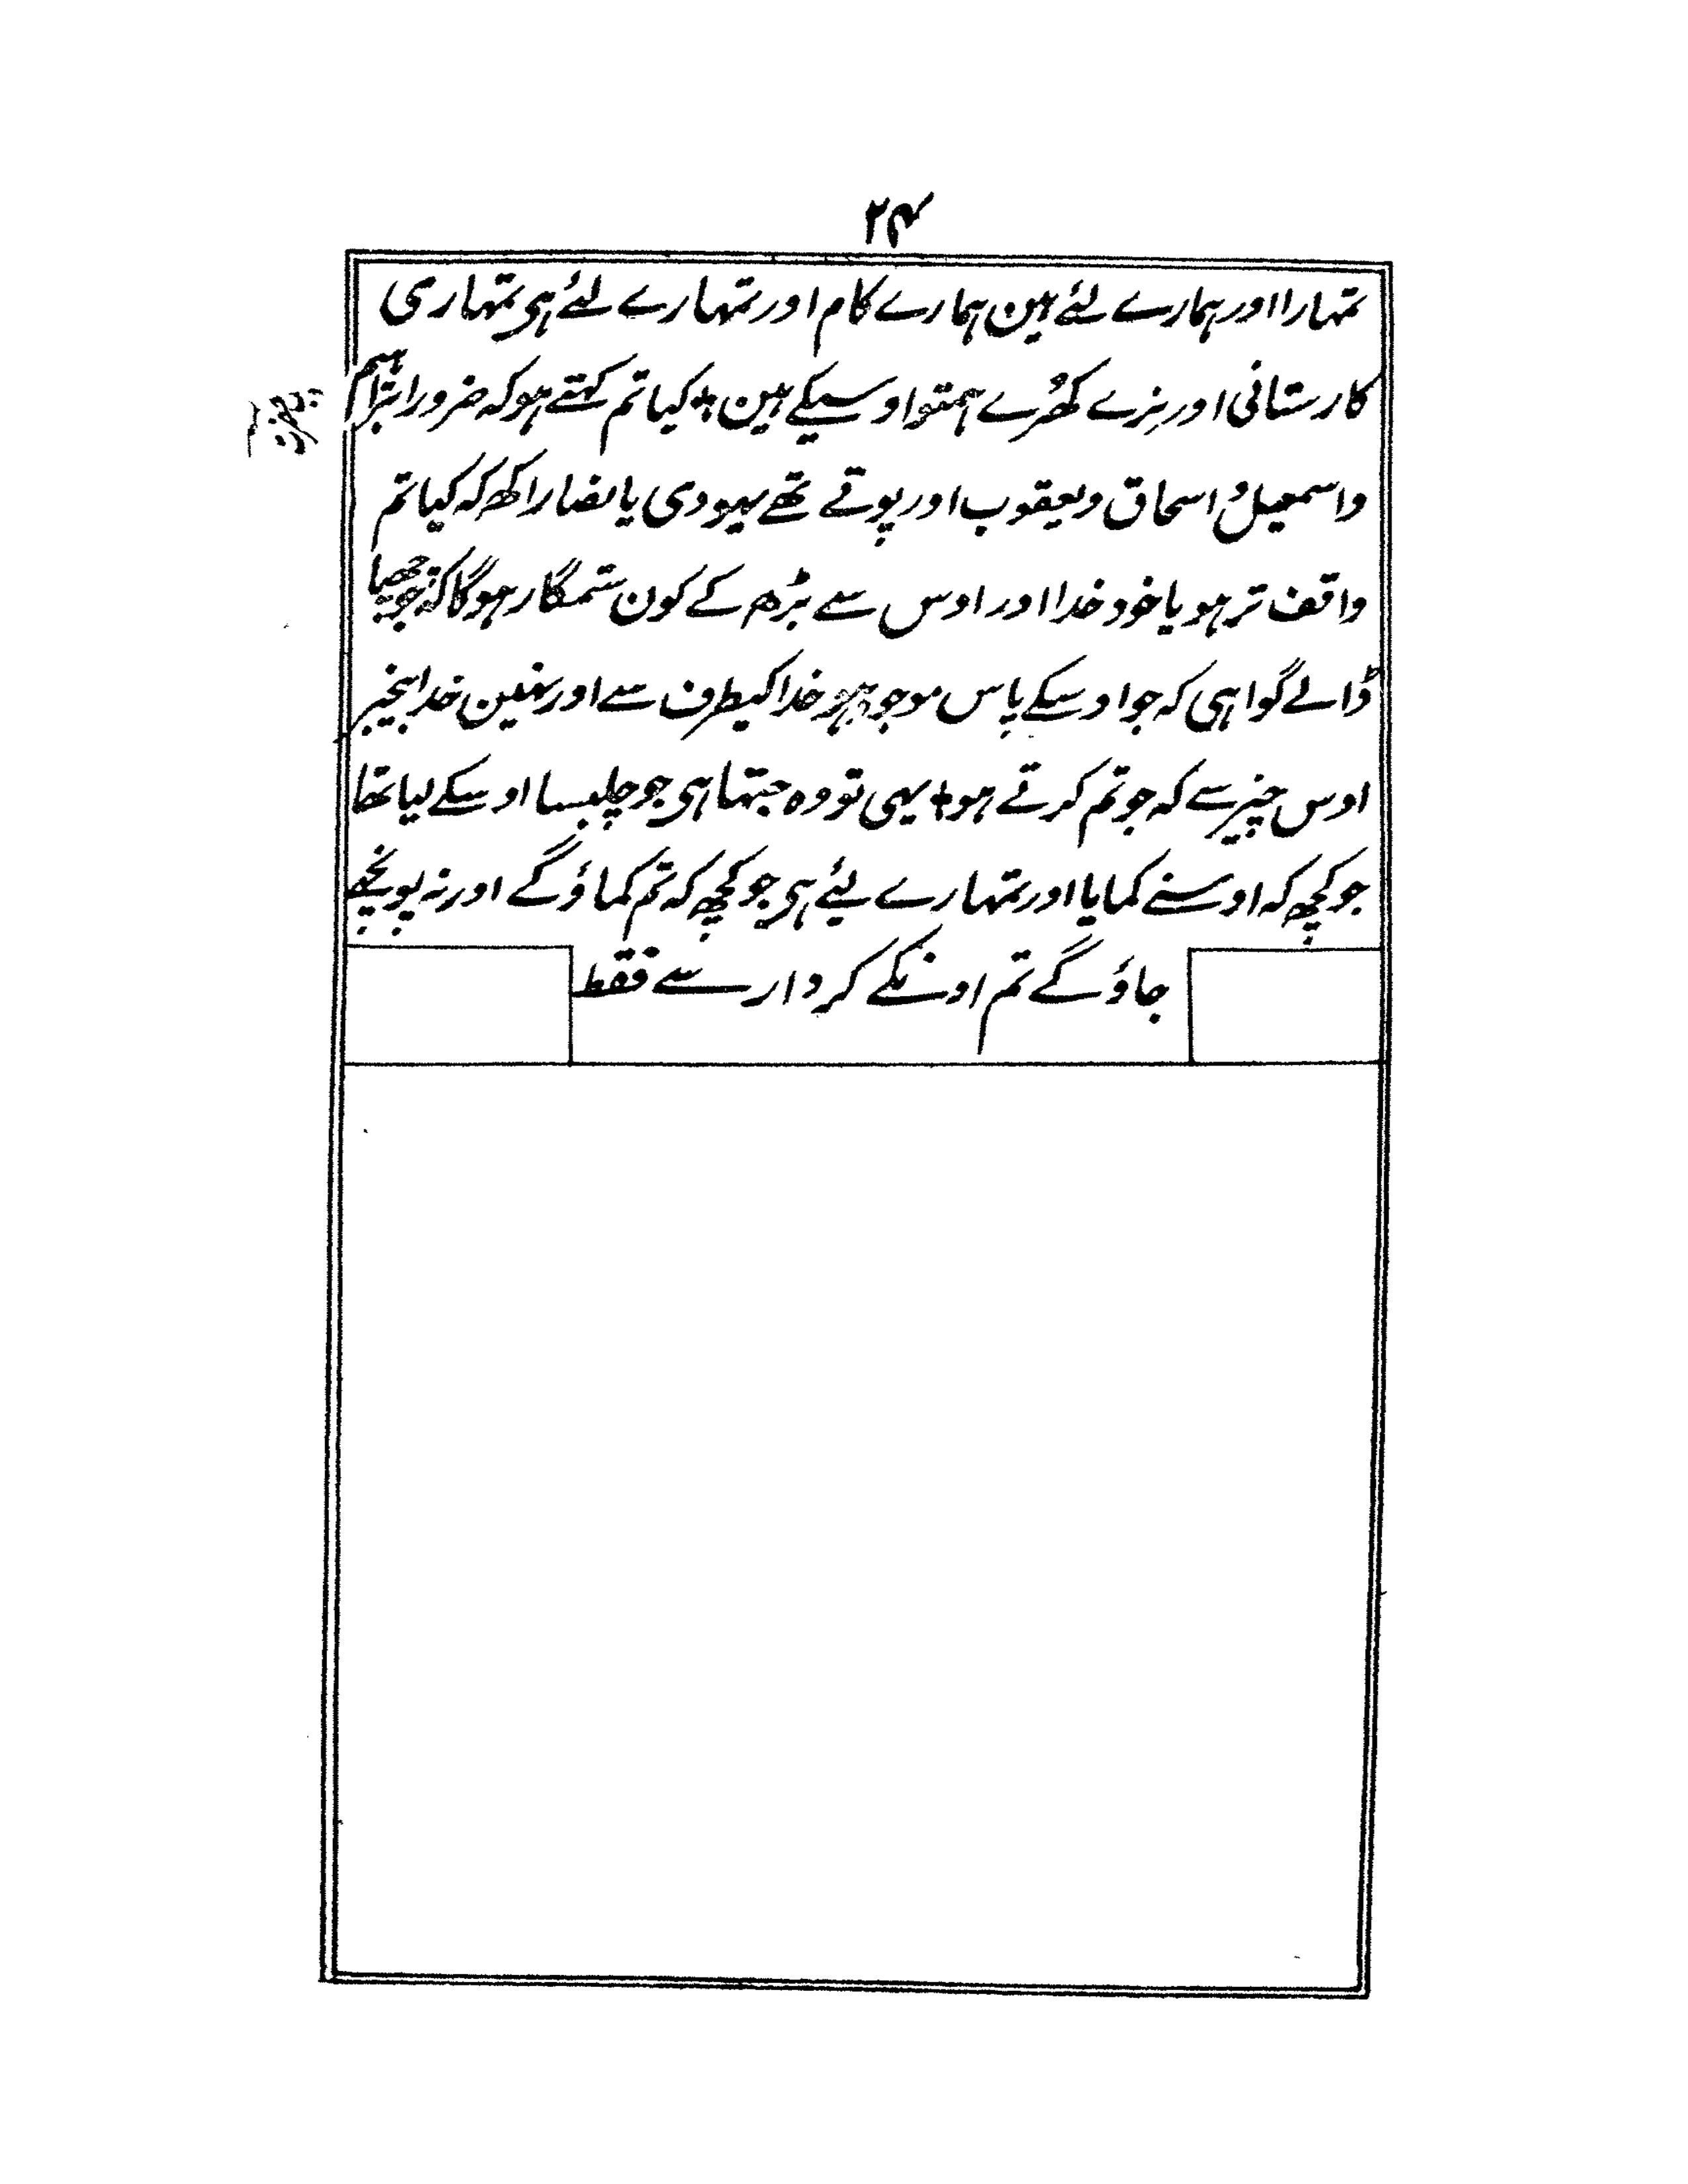 ۲۴
تمہارا اور ہمارے لئے ہین ہمارے کام اور تمہارے لئے ہی تمہاری
کارستانی اور نرے کھرے ہمتو اوسیکے ہین ٭ کیا تم کہتے ہو کہ ضرور ابراہیم
و اسمعیل و اسحاق و یعقوب اور پوتے تھے یہودی یا نصارا کھ کہ کیا تم
واقف تر ہو یا خود خدا اور اوس سے بڑھ کے کون ستمگار ہوگا کہ جو چھپا
ڈالے گواہی کہ جو اوسیکے پاس موجود ہو خدا کیطرف سے اور نہین خدا بیخبر
اوس چیز سے کہ جو تم کرتے ہو ٭ یہی تو وہ جتھا ہی جو چلبسا اوسکے لیا تھا
جو کچھ کہ اوسنے کمایا اور تمہارے لیئے ہی جو کچھ کہ تم کماؤگے اور نہ پونچھے
جاؤگے تم اونکے کردار سے فقط